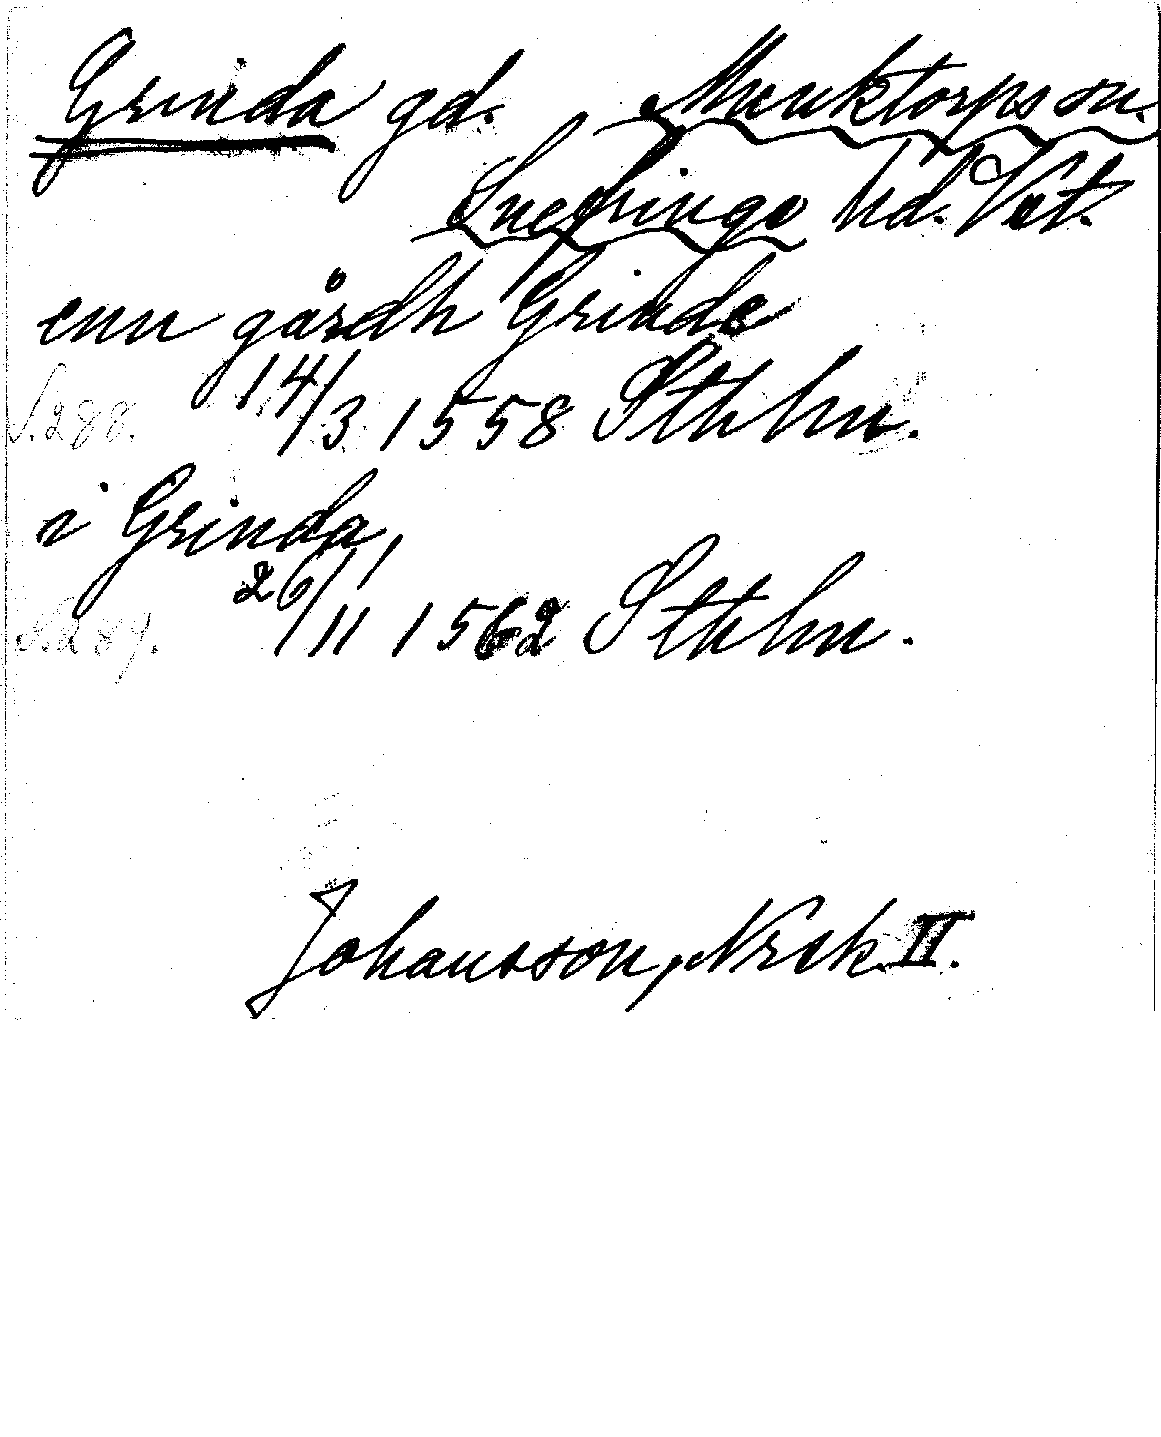 Grinda gd. Munktorps sn.
Snefringe hd. Vst.
enn gårdh Grinde
S. 288. 14/3 1558 Sthlm.
i Grinda,
S. 287. 26/11 1562 Sthlm.
Johansson, Nrsk II.